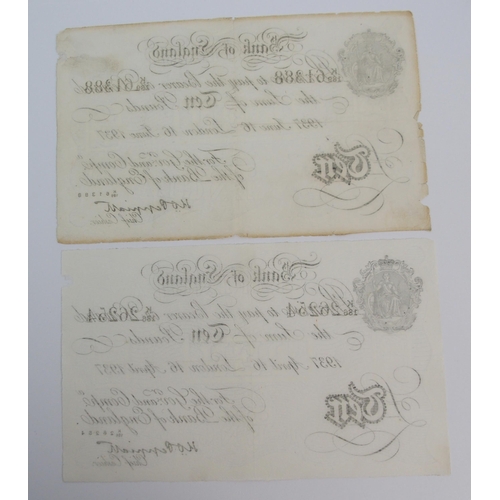 Bank of England
61388 to pay the Bearer 61388
the Sum of Ten Pounds
1937 June 16 London 16 June 1937
For the Gov.r and Comp.a
of the Bank of England.
Ten
K. O. Peppiatt
Chief Cashier
Bank of England
26254 to pay the Bearer 26254
the Sum of Ten Pounds
1937 April 16 London 16 April 1937
For the Gov.r and Comp.a
of the Bank of England.
Ten
K. O. Peppiatt
Chief Cashier